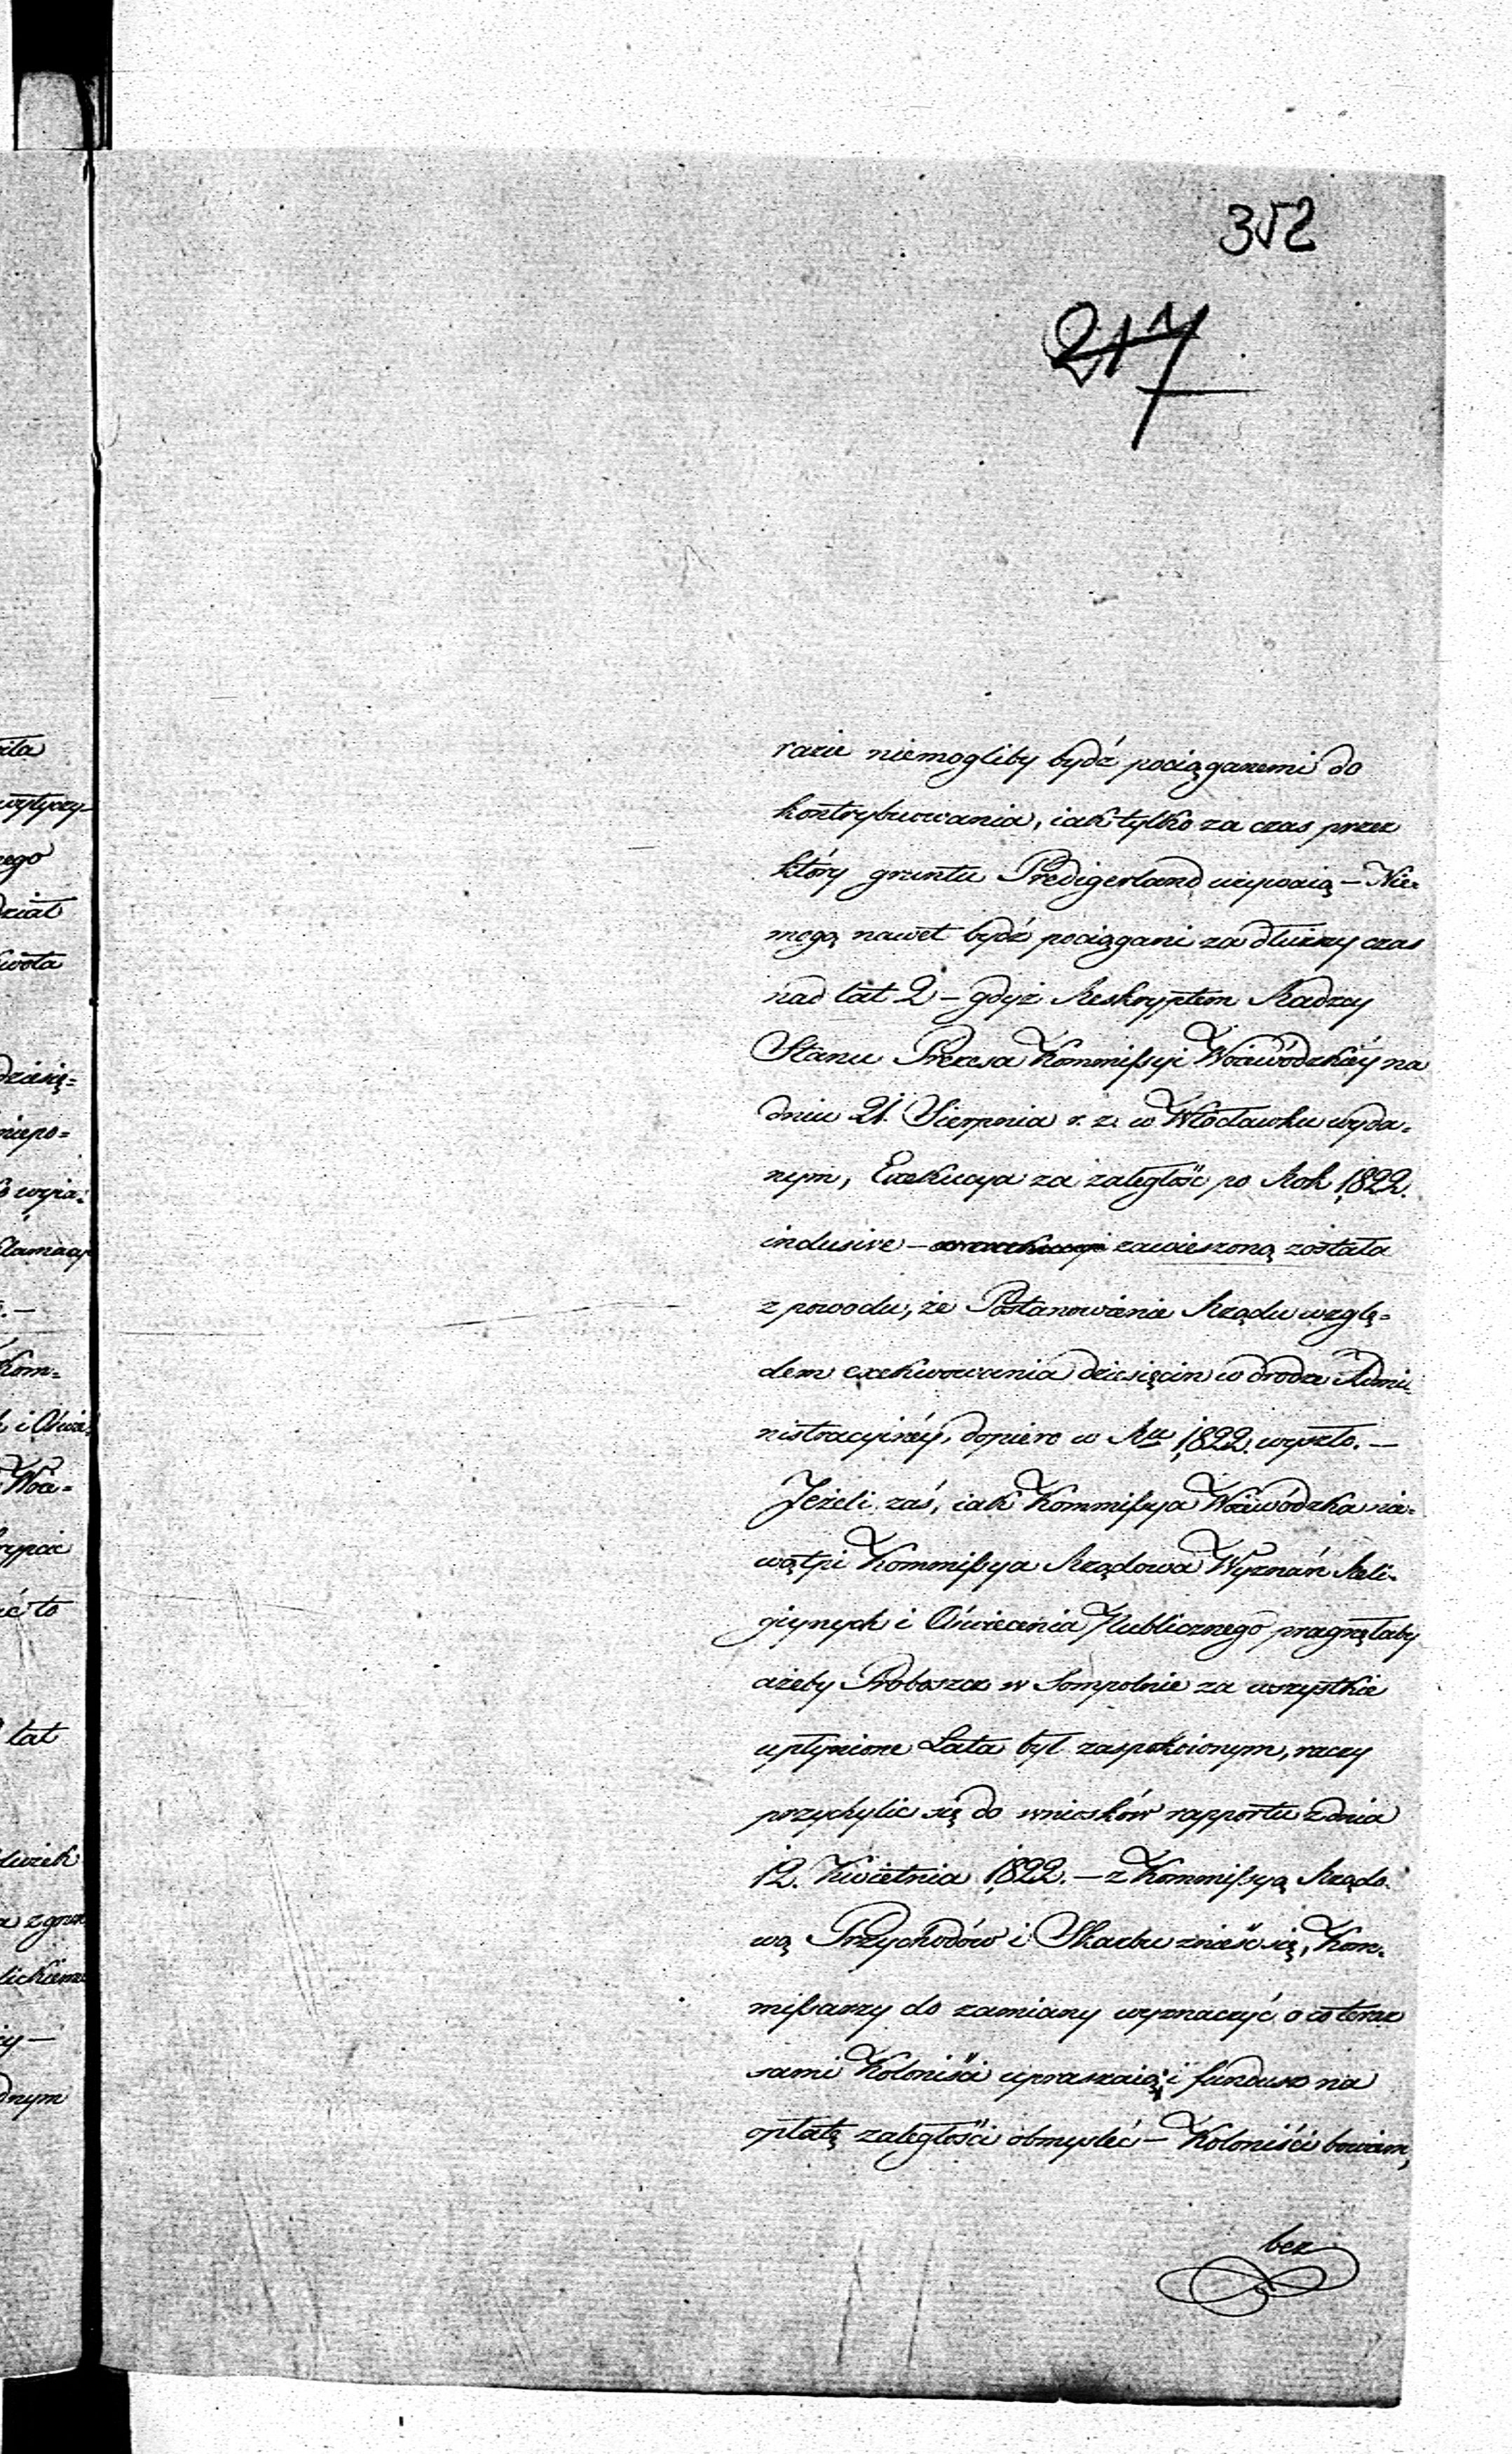 352
217
razie niemogliby bydź pociąganemi do
kontrybuowania, iak tylko za czas przez
który gruntu Predigerland używaią – Nie-
mogą nawet bydź pociągani za dłuższy czas
nad lat 2 – gdyż Reskryptem Radzcy
Stanu Prezesa Kommissyi Woiewódzkiéy na
dniu 21. Sierpnia r. z. w Włocławku wyda-
nym, Exekucya za zaległość po Rok 1822.
inclusive – zawieszoną została
z powodu, że Postanowienie Rządu wzglę-
dem exekwowania dziesięcin w drodze Admi-
nistracyinéy, dopiero w Ru 1822. wyszło. –
Jeżeli zaś, iak Kommissya Woiewódzka nie-
wątpi Kommissya Rządowa Wyznań Reli-
giynych i Oświecenia Publicznego pragnęłaby
ażeby Proboszcz w Sompolnie za wszystkie
upłynione Lata był zaspokoionym, raczy
przychylic się do wniosków rapportu z dnia
12. Kwietnia 1822. – z Kommissyą Rządo-
wą Przychodów i Skarbu znieść się, Kom-
missarzy do zamiany wyznaczyć o co teraz
sami Koloniści upraszaią i fundusz na
opłatę zaległości obmysleć – Koloniści bowiem,
bez